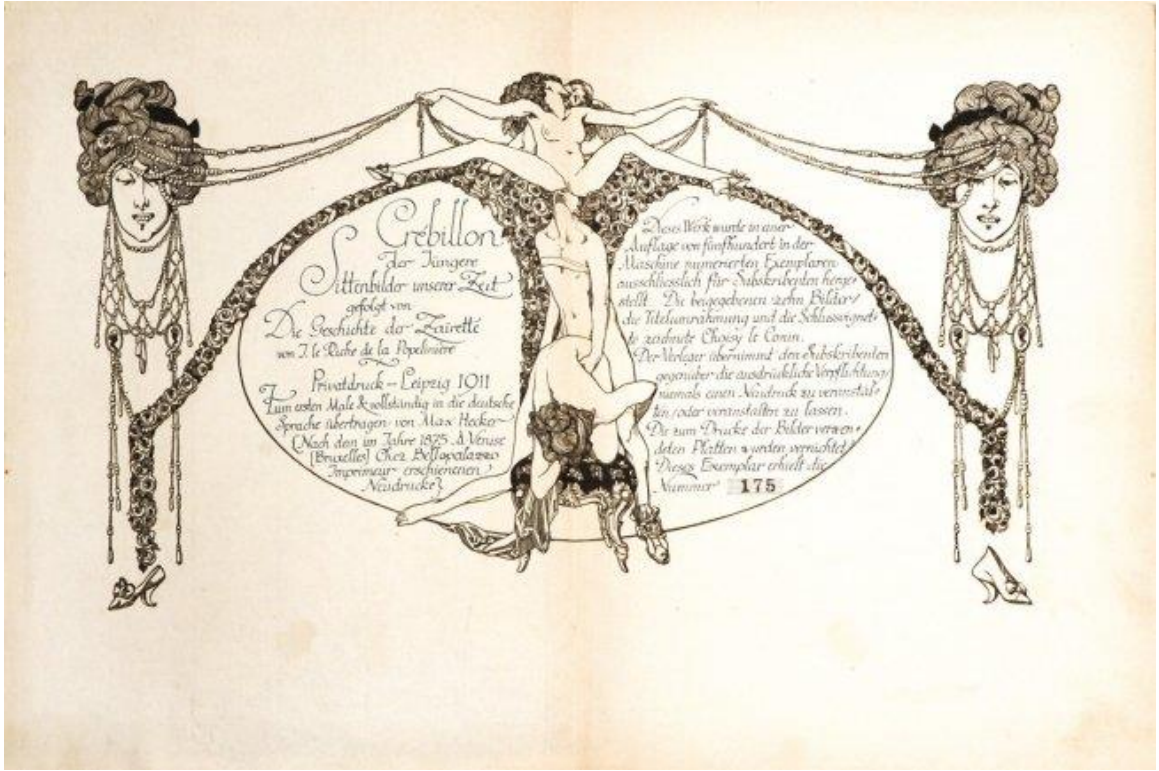 Crébillon
der Jüngere
Sittenbilder unserer Zeit
gefolgt von
Die Geschichte der Zaïrette
von J. le Riche de la Popelinière
Privatdruck – Leipzig 1911
Zum ersten Male & vollständig in die deutsche
Sprache übertragen von Max Hecker
(Nach dem im Jahre 1825 A Venise
[Bruxelles] Chez Bellopalazzo
Imprimeur erschienenen
Neudrucke)
Dieses Werk wurde in einer
Auflage von fünfhundert in der
Maschine numerierten Exemplaren
ausschliesslich für Subskribenten herge-
stellt. Die beigegebenen zehn Bilder,
die Titelumrahmung und die Schlussvignet-
te zeichnete Choisy le Conin.
Der Verleger übernimmt den Subskribenten
gegenüber die ausdrückliche Verpflichtung,
niemals einen Neudruck zu veranstal-
ten oder veranstalten zu lassen.
Die zum Drucke der Bilder verwen-
deten Platten wurden vernichtet.
Dieses Exemplar erhielt die
Nummer 175